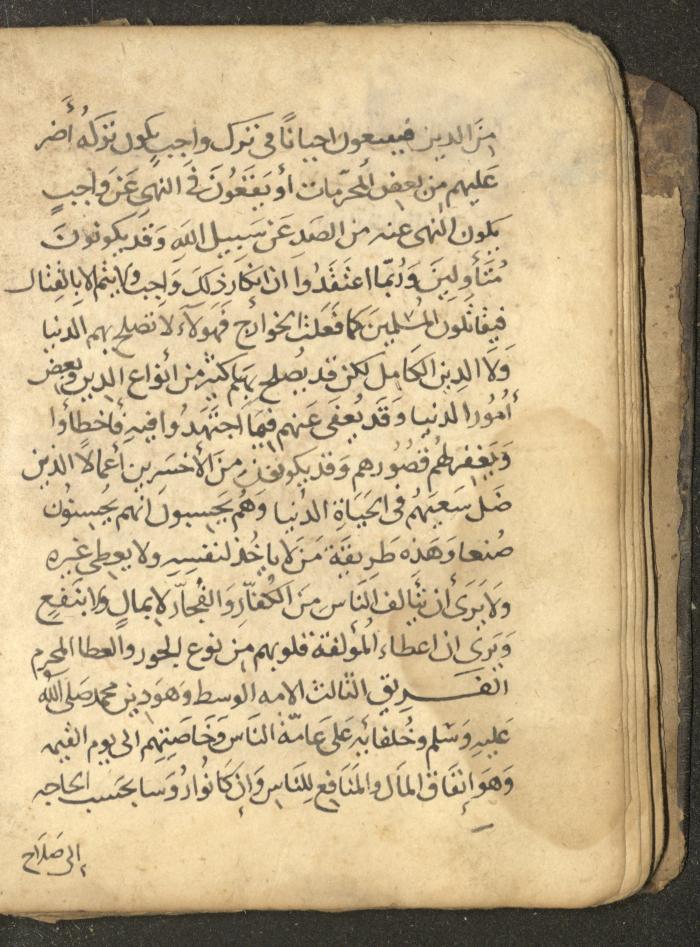 من الدين فيقعون احيانًا في ترك واجبٍ يكون تركهُ أضر
عليهم من بعض المُحرّمات أو يَقَعُونَ في النهي عَن واجبٍ
يكون النهى عنه من الصَدِ عَن سَبيل اللهِ وَقد يكونون
مُتَأولينَ وَرُبّما اعتقدُوا ان انكار ذلك وَاجب ولا يتم الا بالقتال
فيقاتلون المُسلمينَ كما فَعَلت الخوارج فهولآء لا تصلح بهم الدنيا
وَلَا الدين الكامل لكن قد يُصلح بهم كثير من أنواع الدين وبعض
أمُور الدنيا وَقَد يُعفى عَنهم فيمَا اجتَهَدُوا فيهِ فأخطأوا
وَيَغفِر لهُم قُصُورهم وَقد يكونون مِنَ الأخسَرين أعمالًا الذين
ضَل سَعيَهُم في الحيَاةِ الدُنيا وَهُم يَحسِبونَ انهم يُحسِنُون
صُنعا وَهَذِه طَريقَة مَن لا ياخُذ لنفسِهِ ولا يعطى غيره
ولا يَرَى أن يتألف النَاس مِنَ الكُفّارِ وَالفُجّار لا بمالٍ ولا بنَفعٍ
وَيَرى ان اعطاء المُؤلفة قلوبهم من نوع الجور والعطا المحرم
الفَريق الثالث الامه الوسط وَهوَ دين محمد صَلى الله
عَليهِ وَسَلم وخُلفائِهِ عَلى عَامّة النَاس وَخَاصَتِهِم الى يوم القيمه
وَهوَ إنفَاق المَال والمَنَافِع لِلنَاسِ وَإن كانُوا رُوَسا بحَسب الحاجه
إلى صَلاح